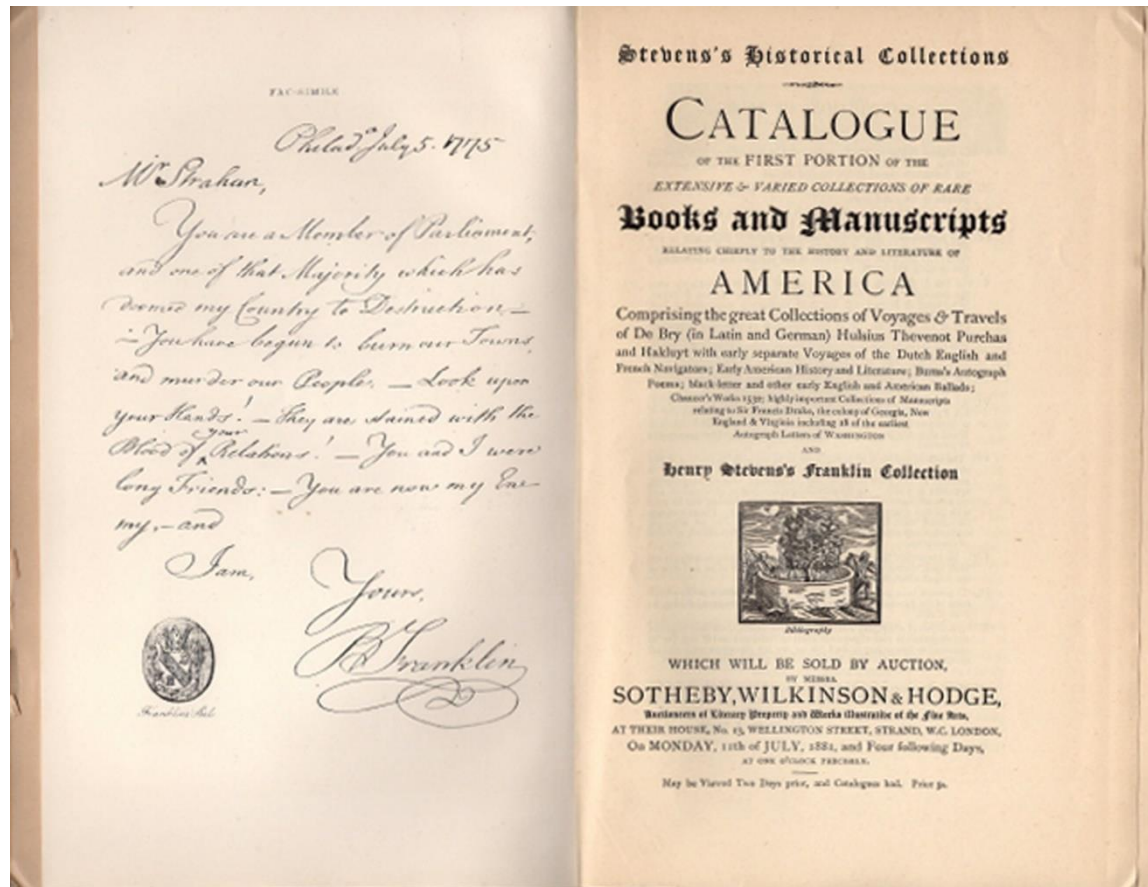 FAC-SIMILE
Philadª July 5. 1775
Mr Strahan,
You are a Member of Parliament,
and one of that Majority which has
doomed my Country to Destruction.—
— You have begun to burn our Towns,
and murder our People. — Look upon
your Hands! — They are stained with the
Blood of your Relations! — You and I were
long Friends: — You are now my Ene-
my, — and
I am,
Yours,
B Franklin
Franklin's Seal
Stevens's Historical Collections
CATALOGUE
OF THE FIRST PORTION OF THE
EXTENSIVE & VARIED COLLECTIONS OF RARE
Books and Manuscripts
RELATING CHIEFLY TO THE HISTORY AND LITERATURE OF
AMERICA
Comprising the great Collections of Voyages & Travels
of De Bry (in Latin and German) Hulsius Thevenot Purchas
and Hakluyt with early separate Voyages of the Dutch English and
French Navigators; Early American History and Literature; Burns's Autograph
Poems; black-letter and other early English and American Ballads;
Chaucer's Works 1532; highly important Collections of Manuscripts
relating to Sir Francis Drake, the colony of Georgia, New
England & Virginia including 28 of the earliest
Autograph Letters of WASHINGTON
AND
Henry Stevens's Franklin Collection
Bibliography
WHICH WILL BE SOLD BY AUCTION,
BY MESSRS.
SOTHEBY, WILKINSON & HODGE,
Auctioneers of Literary Property and Works illustrative of the Fine Arts,
AT THEIR HOUSE, No. 13, WELLINGTON STREET, STRAND, W.C. LONDON,
On MONDAY, 11th of JULY, 1881, and Four following Days,
AT ONE O'CLOCK PRECISELY.
May be Viewed Two Days prior, and Catalogues had. Price